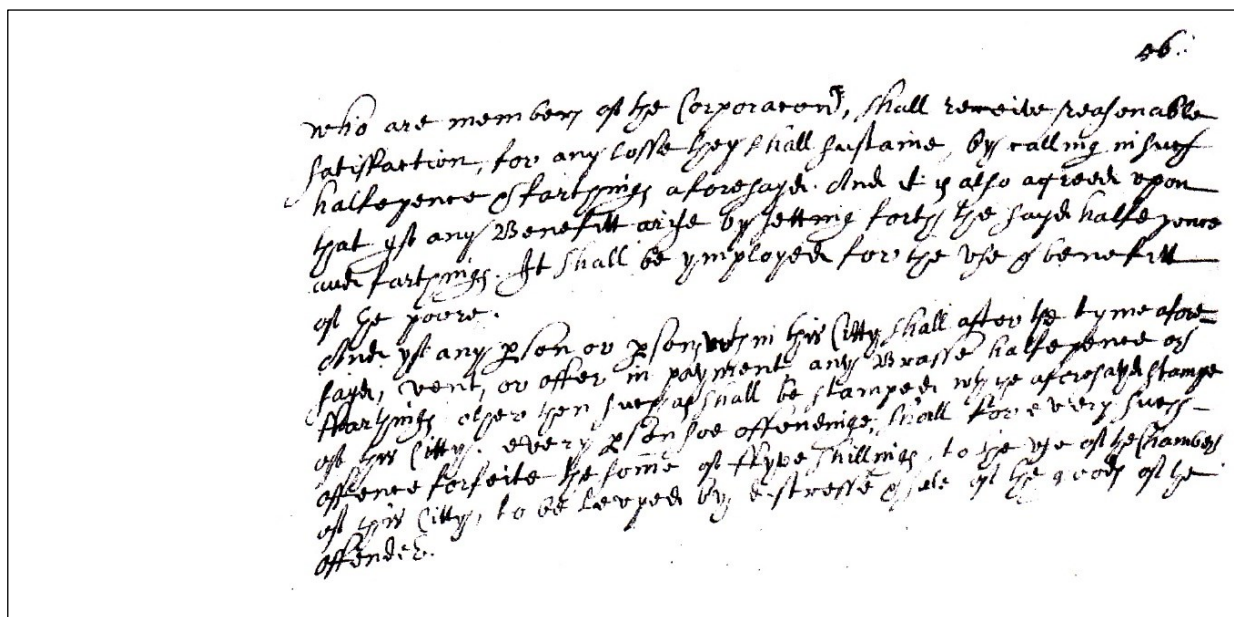 46.
who are members of the Corporacon, shall receive reasonable
satisfaction, for any losse they shall sustaine, by calling in such
halfepence & farthings aforesayd. And it is also agreed upon
that yf any Benefitt arise by setting forth the sayd halfe pence
and farthings. It shall be ymployed for the vse & benefitt
of the poore.
And yf any pson or psons wthin this Citty shall after the tyme afore=
sayd, vent, or offer in payment any Brasse halfepence or
ffarthings other then such as shall be stamped wth the aforesayd stampe
of this Citty. every pson soe offendinge, shall for every such
offence forfeite the some of ffyve shillings, to the vse of the Chamber
of this Citty, to be Levyed by distresse & sale of the goods of the
offender.